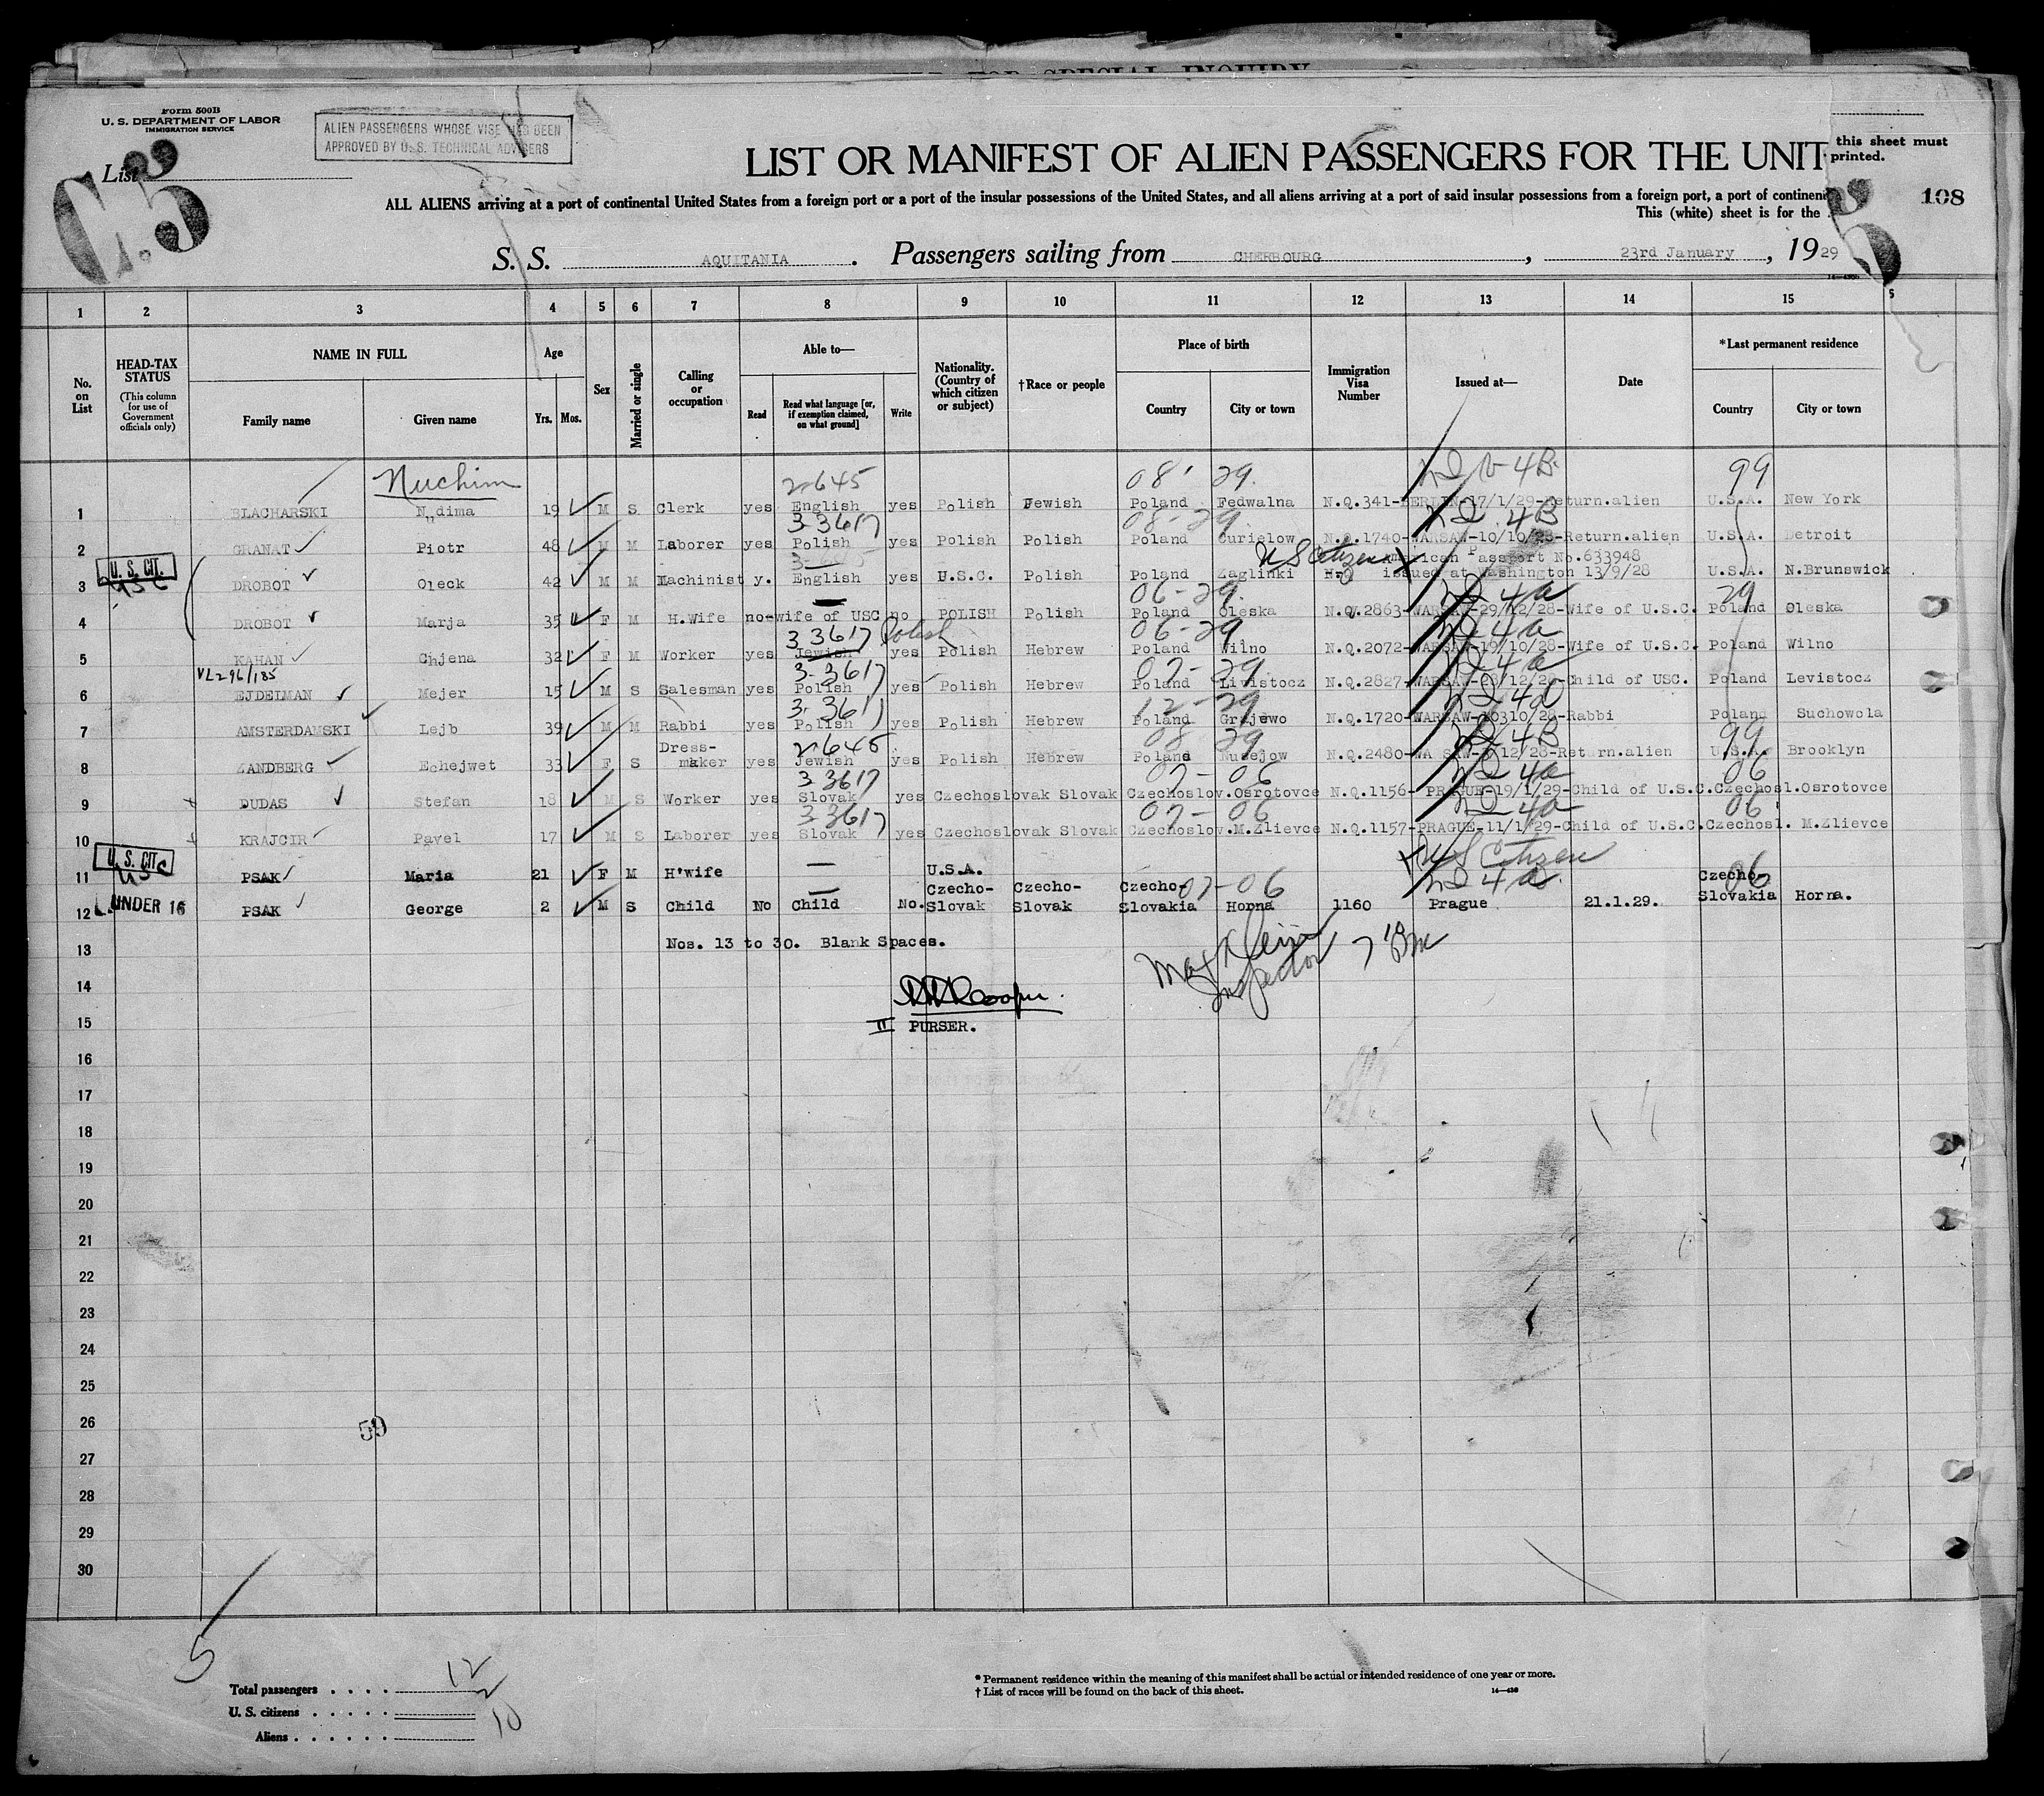 FOR SPECIAL INQUIRY
Form 500B
U. S. DEPARTMENT OF LABOR
IMMIGRATION SERVICE
ALIEN PASSENGERS WHOSE VISE HAS BEEN
APPROVED BY U.S. TECHNICAL ADVISERS
List
C.5
LIST OR MANIFEST OF ALIEN PASSENGERS FOR THE UNIT
this sheet must
printed.
5
108
ALL ALIENS arriving at a port of continental United States from a foreign port or a port of the insular possessions of the United States, and all aliens arriving at a port of said insular possessions from a foreign port, a port of continen
This (white) sheet is for the
S. S. AQUITANIA. Passengers sailing from CHERBOURG, 23rd January, 1929
1 2 3 4 5 6 7 8 9 10 11 12 13 14 15
No. on List
HEAD-TAX STATUS
(This column for use of Government officials only)
NAME IN FULL
Family name
Given name
Age
Yrs.
Mos.
Sex
Married or single
Calling or occupation
Able to—
Read
Read what language [or, if exemption claimed, on what ground]
Write
Nationality. (Country of which citizen or subject)
†Race or people
Place of birth
Country
City or town
Immigration Visa Number
Issued at—
Date
*Last permanent residence
Country
City or town
Nuchim 2-645 08' 29. 4B 99
1 BLACHARSKI N,,dima 19 M S Clerk yes English yes Polish Jewish Poland Fedwalna N.Q.341-BERLIN-17/1/29-Return.alien U.S.A. New York
3 3617 08-29 4B
2 GRANAT Piotr 48 M M Laborer yes Polish yes Polish Polish Poland Curielow N.Q.1740-WARSAW-10/10/28-Return.alien U.S.A. Detroit
U. S. CIT. U S Citizen American Passport No.633948
3 USC DROBOT Oleck 42 M M Machinist y. English yes U.S.C. Polish Poland Zaglinki issued at Washington 13/9/28 U.S.A. N.Brunswick
06-29. 4a 29
4 DROBOT Marja 35 F M H.Wife no-wife of USC no POLISH Polish Poland Oleska N.Q.2863-WARSAW-29/12/28-Wife of U.S.C. Poland Oleska
3 3617 Polish 06-29 4a
5 KAHAN Chjena 32 F M Worker yes Jewish yes Polish Hebrew Poland Wilno N.Q.2072-WARSAW-19/10/28-Wife of U.S.C. Poland Wilno
VL296/185 3-3617 07-29. 4a
6 EJDELMAN Mejer 15 M S Salesman yes Polish yes Polish Hebrew Poland Livistocz N.Q.2827-WARSAW-28/12/28-Child of USC. Poland Levistocz
3-3617 12-29 4D
7 AMSTERDAMSKI Lejb 39 M M Rabbi yes Polish yes Polish Hebrew Poland Grajewo N.Q.1720-WARSAW-10310/28-Rabbi Poland Suchowola
2-645 08 29 4B 99
8 ZANDBERG Echejwet 33 F S Dress-maker yes Jewish yes Polish Hebrew Poland Nusejow N.Q.2480-WA SAW- /12/28-Return.alien U.S.A. Brooklyn
3 3617 07-06 4a 06
9 DUDAS Stefan 18 M S Worker yes Slovak yes Czechoslovak Slovak Czechoslov.Osrotovce N.Q.1156- PRAGUE-19/1/29-Child of U.S.C.Czechosl.Osrotovce
3 3617 07-06 4a 06
10 KRAJCIR Pavel 17 M S Laborer yes Slovak yes Czechoslovak Slovak Czechoslov.M.Zlievce N.Q.1157-PRAGUE-11/1/29-Child of U.S.C.Czechosl. M.Zlievce
U. S. CIT. U S Citizen
11 USC PSAK Maria 21 F M H'wife U.S.A.
07-06 4a 06
12 UNDER 16 PSAK George 2 M S Child No Child No. Czecho-Slovak Czecho-Slovak Czecho-Slovakia Horna 1160 Prague 21.1.29. Czecho-Slovakia Horna.
13 Nos. 13 to 30. Blank Spaces.
Max Klein
Inspector
14
Cooper
15 II PURSER.
16
17
18
19
20
21
22
23
24
25
26
59
27
28
29
30
5
Total passengers . . . . 12
U. S. citizens . . . . . 2
Aliens . . . . . . 10
* Permanent residence within the meaning of this manifest shall be actual or intended residence of one year or more.
† List of races will be found on the back of this sheet.
14—430